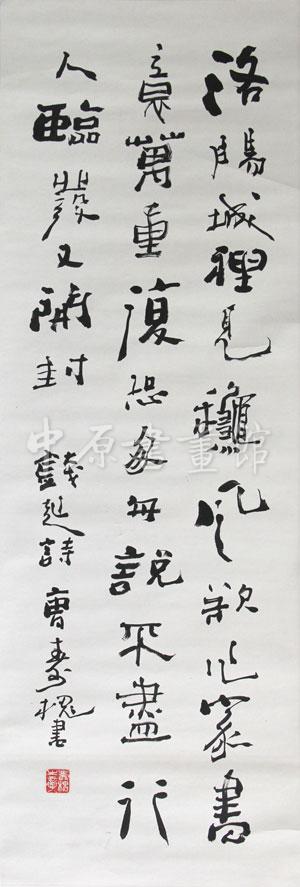 洛陽城裡見龝風欲作家書
意萬重復恐匆匆說不盡行
人臨發又開封
詩 曹壽槐書
中原書畫館